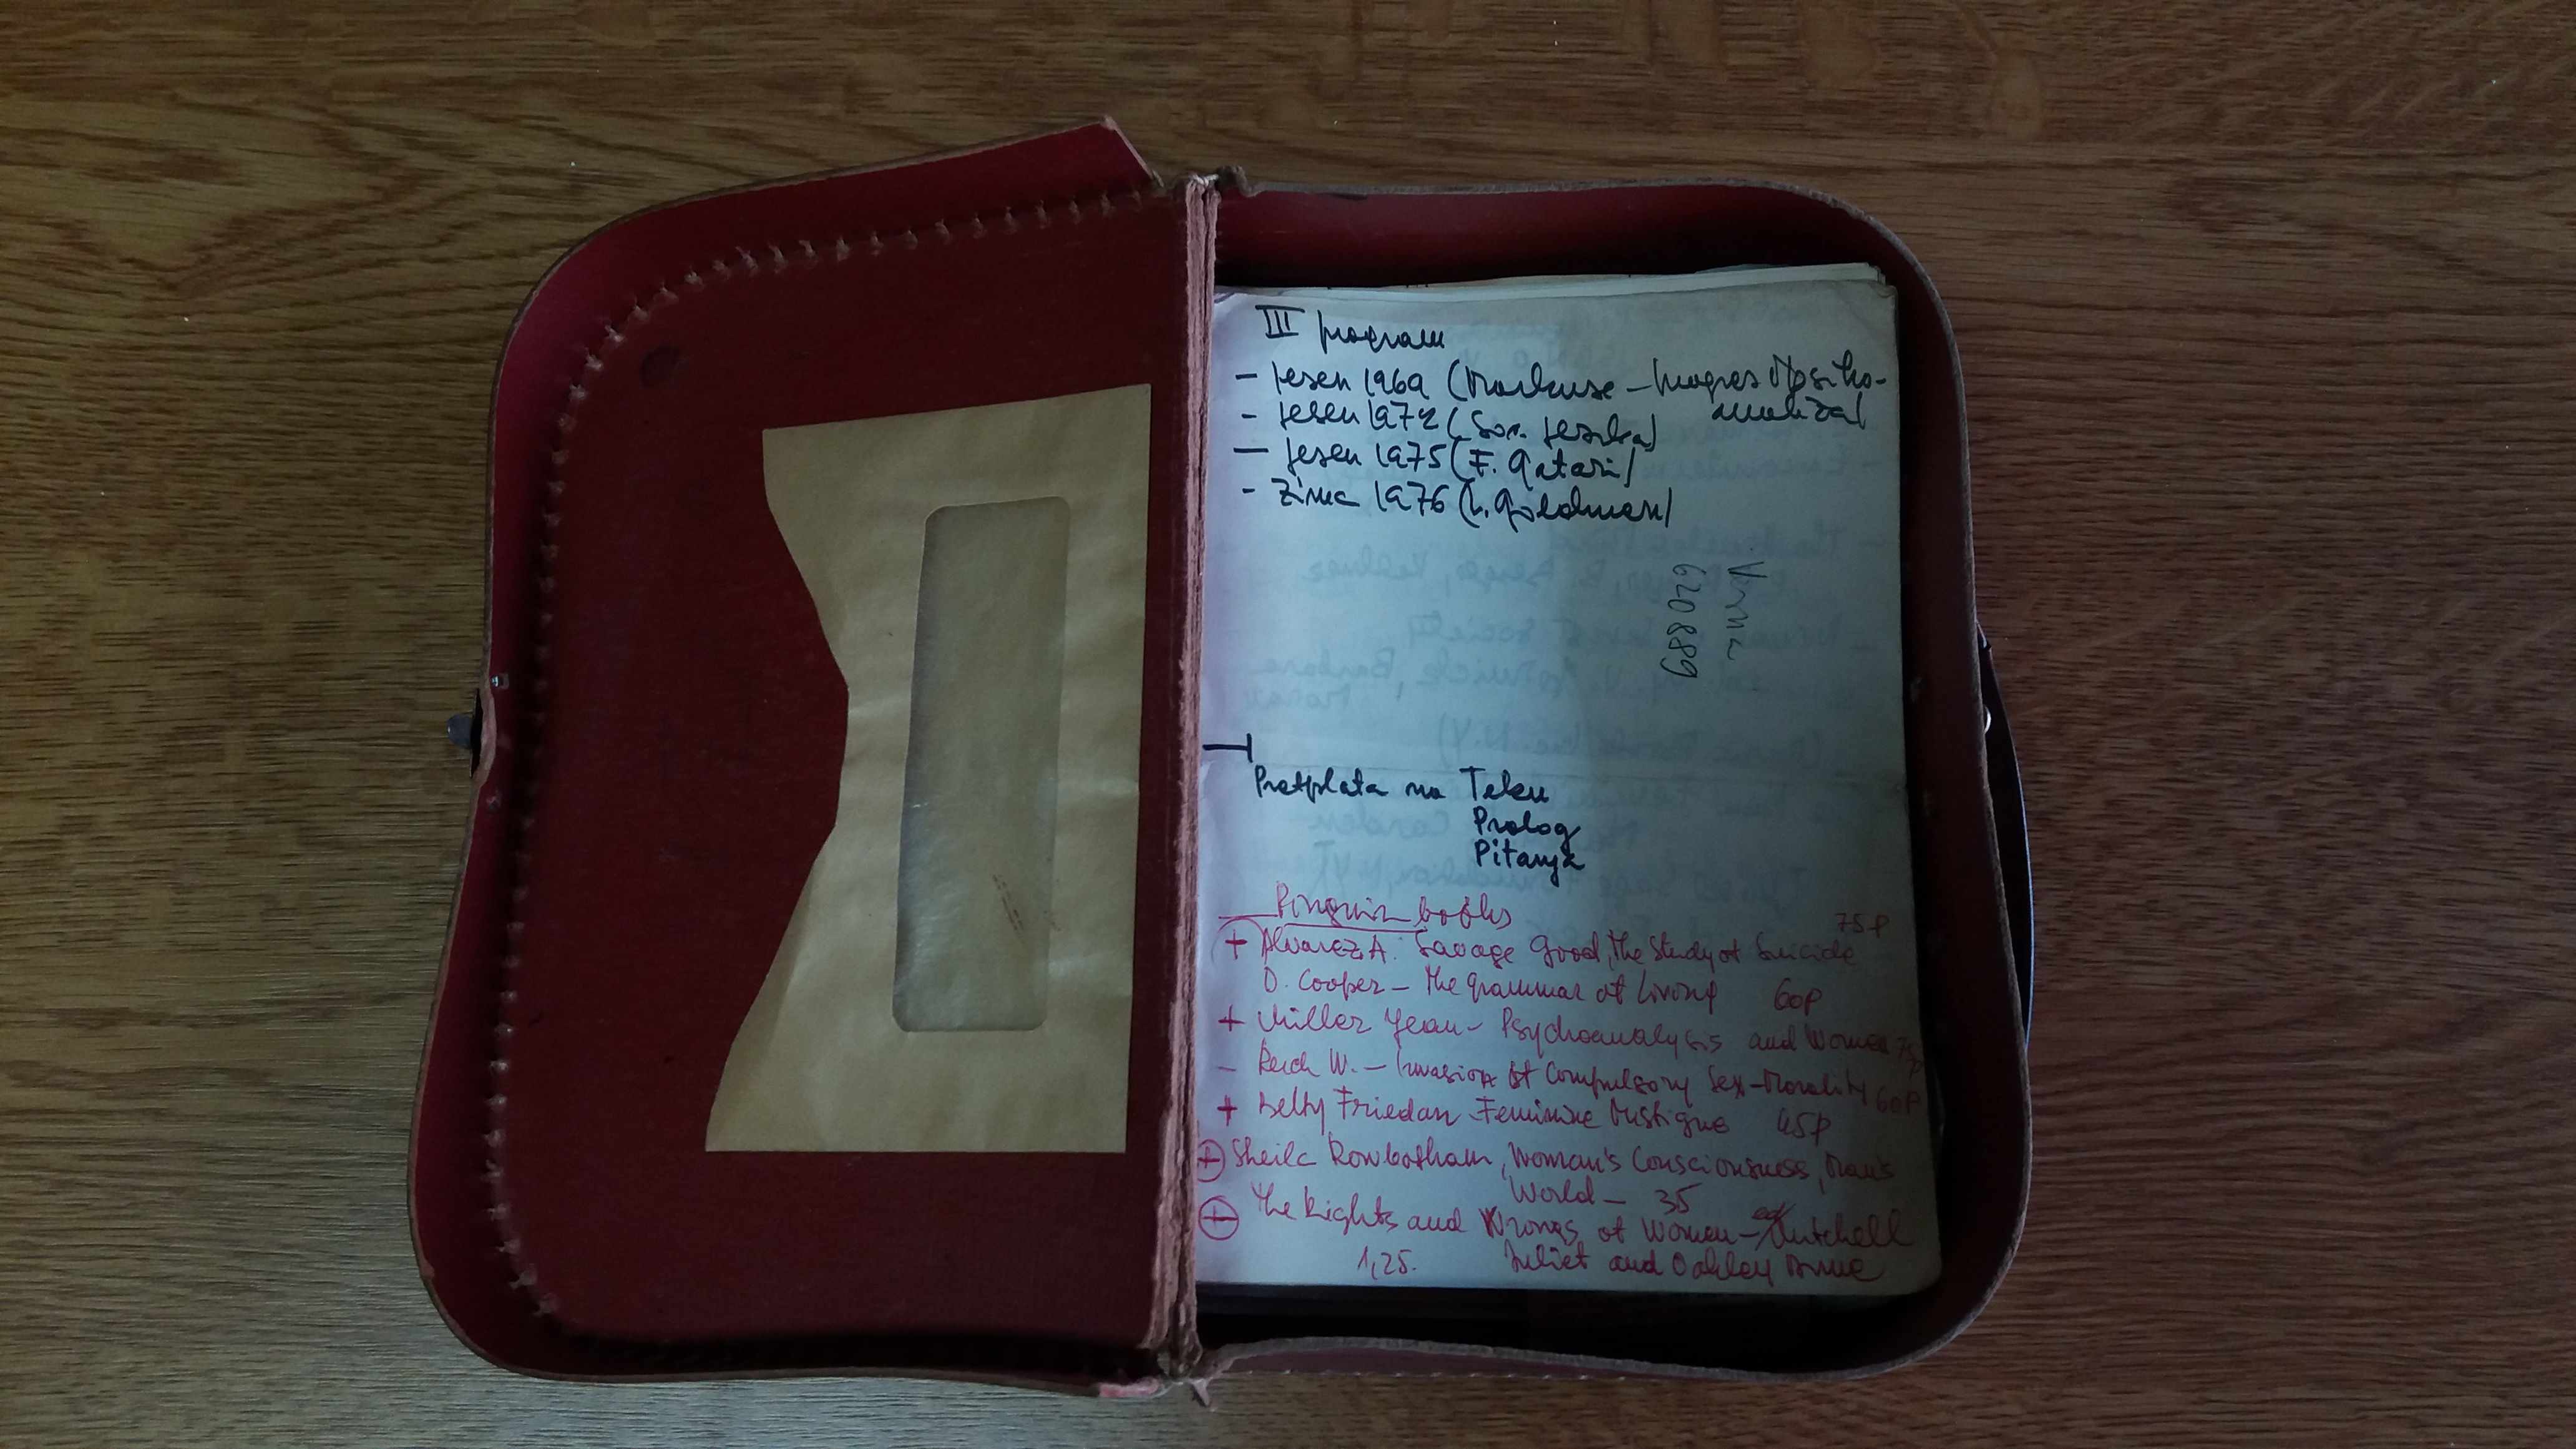 III program
- Jesen 1969 (Markuse - Kongres o psiho-
analizi)
- Jesen 1972 (Soc. jezika)
- Jesen 1975 (F. Gatari)
- Zima 1976 (L. Goldman)
Vesna
6208889
Pretplata na Teku
Prolog
Pitanja
Penguin books
75p
+ Alvarez A. Savage Good, the Study of Suicide
D. Cooper - The grammar of living 60p
+ Miller Jean - Psychoanalysis and Women 75p
- Reich W. - Invasion of Compulsory Sex-Morality 60p
+ Betty Friedan - Feminine Mistique 45p
+ Sheila Rowbotham, Woman's Consciousness, Man's
World - 35
+ The Rights and Wrongs of Women - ed Mitchell
1,25. Juliet and Oakley Anne